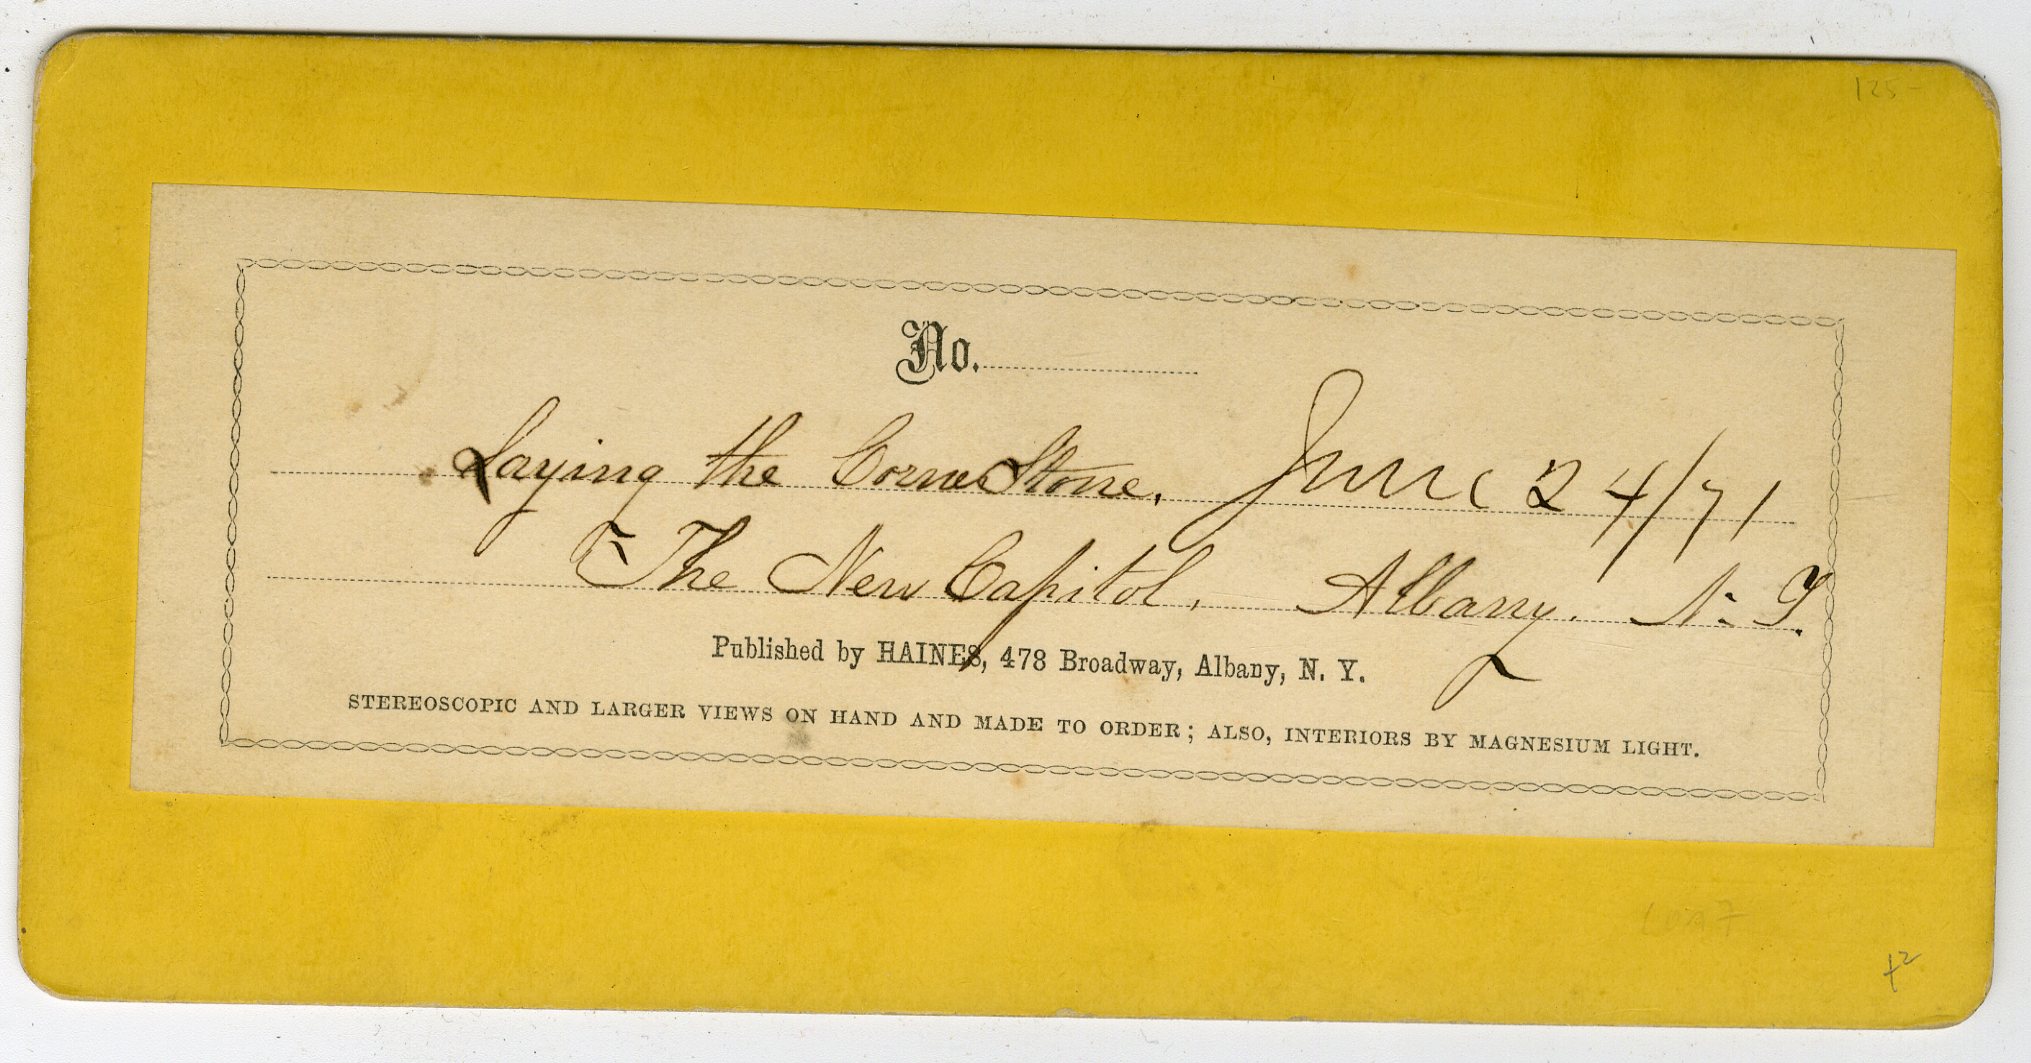 125-
No.
Laying the Corner Stone. June 24/71
The New Capitol, Albany. N. Y.
Published by HAINES, 478 Broadway, Albany, N. Y.
STEREOSCOPIC AND LARGER VIEWS ON HAND AND MADE TO ORDER; ALSO, INTERIORS BY MAGNESIUM LIGHT.